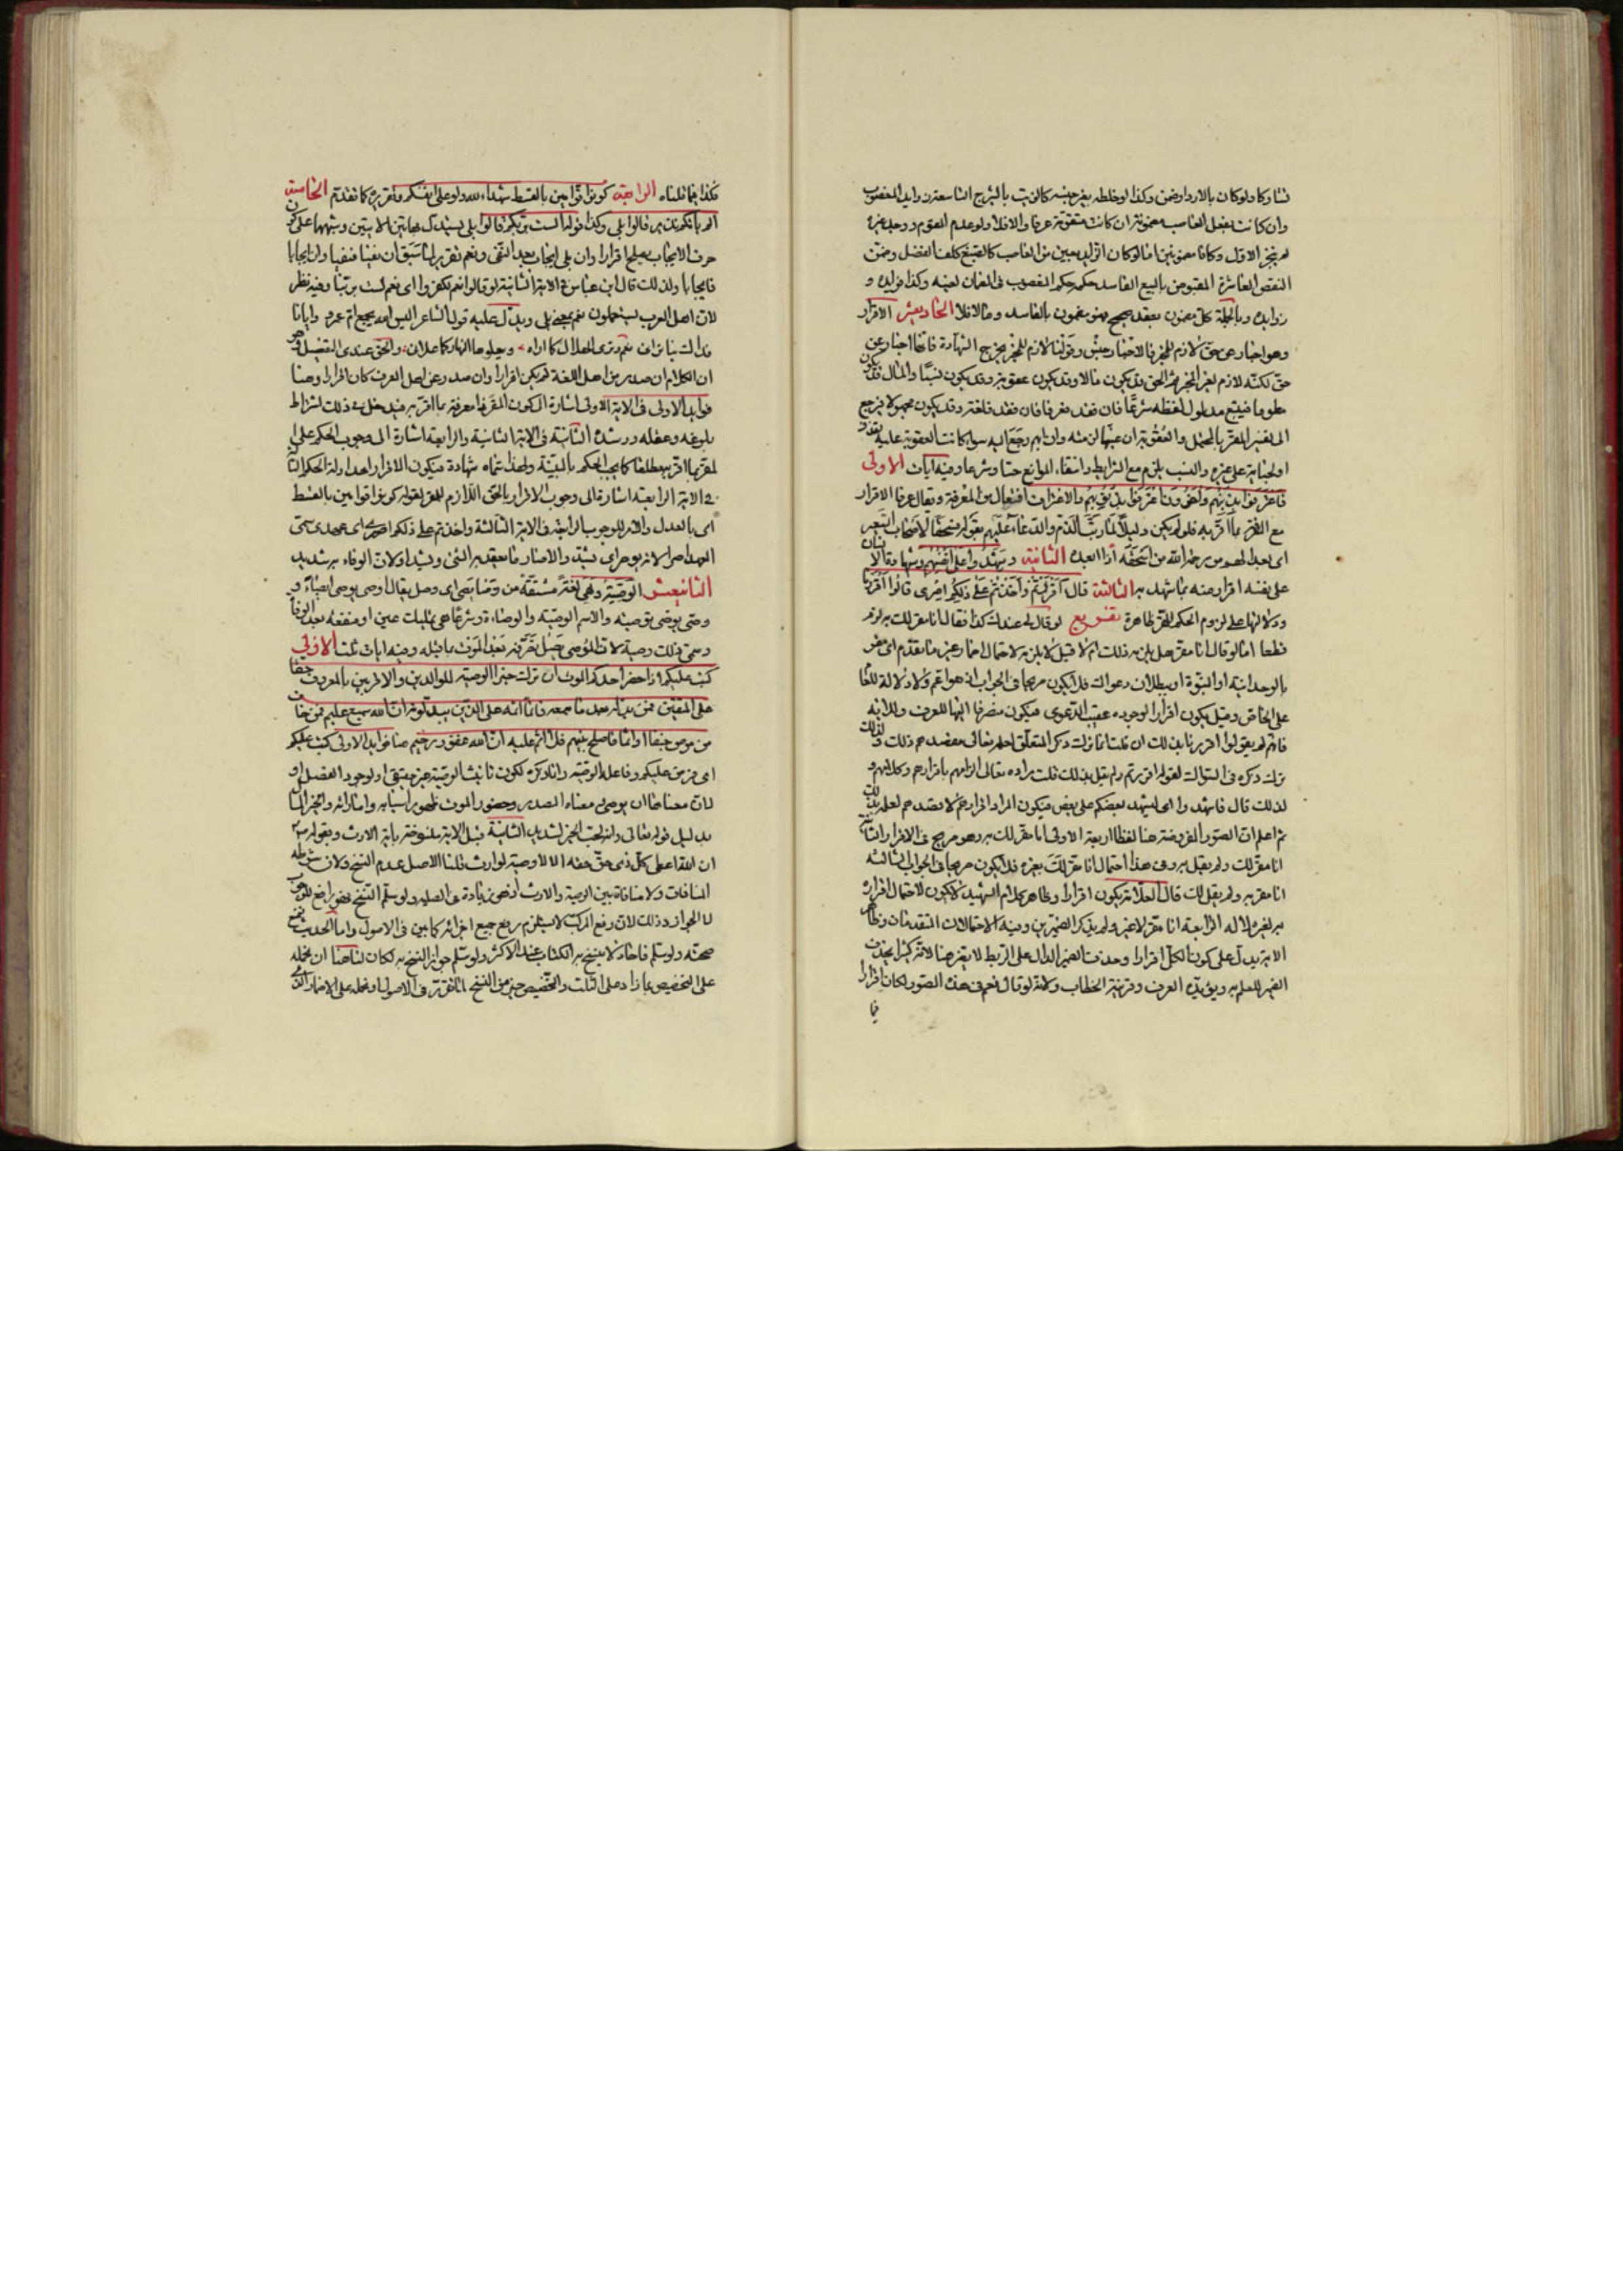 تشاركا ولو كان بالاردا وضمن وكذا لو خلطه بغير جنسه كالزيت بالشيرج التاسعة زوايد المغصوب
وان كانت بفعل الغاصب مضمونة ان كانت متقومة عرفا والا فلا ولو عدم المقوم ووجد غيره
لم ينجبر الاول وكانا مضمونين اما لو كان الزايد بعين من الغاصب كالصبغ كلف الفصل وضمن
النقص العاشرة المقبوض بالبيع الفاسد حكمه حكم المغصوب في الضمان لعينه وكذا فوايده و
زوايده وبالجملة كل مضمون بعقد صحيح فهو مضمون بالفاسد وما لا فلا الحاديعشر الاقرار
وهو اخبار عن حق لازم للمخبر فالاخبار جنس وقولنا لازم للمخبر يخرج الشهادة فانها اخبار عن
حق لكنه لازم لغير المخبر ثم الحق قد يكون مالا وقد يكون عقوبة وقد يكون نسبا والمال قد يكون
معلوما فيتبع مدلول لفظه شرعا فان فقد فعرفا فان فقد فلغة وقد يكون مجهولا فيرجع
الى تفسير المقر بالمحتمل والعقوبة ان عينها لزمته وان ابهم رجع اليه سواء كانت العقوبة عليه
او لجناية على غيره والنسب يلزم مع الشرايط وانتفاء الموانع حسا وشرعا وفيه آيات الاولى
فاعترفوا بذنبهم وآخرون اعترفوا بذنوبهم والاعتراف افتعال من المعرفة ويقال عرفا الاقرار
مع المقر بما اقر به فلو لم يكن دليلا لما رتب الذم والدعاء عليهم بقوله فسحقا لاصحاب السعير
اي بعدا لهم من رحمة الله من اسحقه اذا ابعده الثانية وشهدوا على انفسهم وشهادة الانسان
على نفسه اقرار منه بما شهد به الثالثة قال أأقررتم وأخذتم على ذلكم اصري قالوا اقررنا
ودلالتها على لزوم الحكم للمقر ظاهرة تفريع لو قال لي عندك كذا فقال انا مقر لك به لزم
قطعا اما لو قال انا مقر هل يلزمه ذلك ام لا قيل لا يلزمه لاحتمال اضمار غير ما تقدم اي مقر
بالوحدانية او النبوة او ببطلان دعواك فلا يكون صريحا في الجواب اذ هو اعم ولا دلالة للعام
على الخاص وقيل يكون اقرارا لوجوده عقيب الدعوى فيكون منصرفا اليها للعرف وللاية
فانهم لم يقولوا اقررنا بذلك ان قلت انما ترك ذكر المتعلق لعلمه تعالى بقصدهم ذلك ولذلك
ترك ذكره في السؤال لقوله اقررتم ولم يقل بذلك قلت مراده تعالى الزامهم باقرارهم وكلامهم و
لذلك قال فاشهدوا اي ليشهد بعضكم على بعض فيكون المراد اقرارهم لا قصدهم لعلمه بذلك
ثم اعلم ان الصور المفروضة هنا لفظا اربعة الاولى انا مقر لك به وهو صريح في الاقرار الثانية
انا مقر لك ولم يقل به وفي هذا احتمال انا مقر لك بغيره فلا يكون صريحا في الجواب الثالثة
انا مقر به ولم يقل لك قال العلامة يكون اقرارا وظاهر كلام الشهيد لا يكون لاحتمال اقراره
به لغيره لا له الرابعة انا مقر لا غير ولم يذكر الضميرين وفيه الاحتمالان المتقدمان وظاهر
الاية يدل على كون الكل اقرارا وحذف الضمير الدال على الربط لا يضر هنا لانه كثيرا يحذف
الضمير للعلم به ويؤيده العرف وقرينة الخطاب ولانه لو قال نعم في هذه الصور لكان اقرارا
فيما
فكذا فيما قلناه الرابعة كونوا قوامين بالقسط شهداء لله ولو على انفسكم وتقريره كما تقدم الخامسة
الم يأتكم نذير قالوا بلى وكذا قوله الست بربكم قالوا بلى يستدل بهاتين الايتين وشبههما على كون
حرف الايجاب يصلح اقرارا وان بلى ايجاب بعد النفي ونعم تقرير لما سبق ان نفيا فنفيا وان ايجابا
فايجابا ولذلك قال ابن عباس في الاية الثانية لو قالوا نعم لكفروا اي نعم لست بربنا وفيه نظر
لان اهل العرب يستعملون نعم بمعنى بلى ويدل عليه قول الشاعر اليس الله يجمع ام عمرو وايانا
فذاك بنا تداني نعم وترى الهلال كما اراه ويعلوها النهار كما علاني والحق عندي التفصيل وهو
ان الكلام ان صدر من اهل اللغة لم يكن اقرارا وان صدر عن اهل العرف كان اقرارا وهنا
فوايد الاولى في الاية الاولى اشارة الى كون المقر له معرفة بما اقر به فيدخل في ذلك اشتراط
بلوغه وعقله ورشده الثانية في الاية الثانية والرابعة اشارة الى وجوب الحكم على
المقر بما اقر به مطلقا كما يجب الحكم بالبينة ولهذا سماه شهادة فيكون الاقرار احد ادلة الحكم الثالثة
في الاية الرابعة اشارة الى وجوب الاقرار بالحق اللازم للمقر لقوله كونوا قوامين بالقسط
اي بالعدل والامر للوجوب الرابعة في الاية الثالثة واخذتم على ذلكم اصري اي عهدي سمى
العهد اصرا لانه يوصر اي يشد والاصار ما يعقد به الشيء ويشد اولان الوفاء به شديد
الثانيعشر الوصية وهي لغة مشتقة من وصا يصي اي وصل يقال اوصى يوصي ايصاء و
وصى يوصي توصية والاسم الوصية والوصاة وشرعا هي تمليك عين او منفعة بعد الوفاة
وسمي ذلك وصية لان الموصي يصل تصرفه بعد الموت بما قبله وفيه ايات ثلث الاولى
كتب عليكم اذا حضر احدكم الموت ان ترك خيرا الوصية للوالدين والاقربين بالمعروف حقا
على المتقين فمن بدله بعد ما سمعه فانما اثمه على الذين يبدلونه ان الله سميع عليم فمن خاف
من موص جنفا او اثما فاصلح بينهم فلا اثم عليه ان الله غفور رحيم هنا فوايد الاولى كتب عليكم
اي فرض عليكم وفاعله الوصية وانما ذكره لكون تانيث الوصية غير حقيقي او لوجود الفصل او
لان معناها ان يوصي معناه المصدر وحضور الموت ظهور اسبابه واماراته والخير المال
بدليل قوله تعالى وانه لحب الخير لشديد الثانية قيل الاية منسوخة باية الارث وبقوله ص
ان الله اعطى كل ذي حق حقه الا لا وصية لوارث قلنا الاصل عدم النسخ ولان شرطه
المنافاة ولا منافاة بين الوصية والارث اقصى زيادة في الصلة ولو سلم النسخ فهو رافع للوجوب
لا الجواز وذلك لان رفع المركب لا يستلزم رفع جميع اجزائه كما بين في الاصول واما الحديث فنمنع
صحته ولو سلم فاحاد لا ينسخ به الكتاب عند الاكثر ولو سلم جواز النسخ به لكان لنا هنا ان نحمله
على التخصيص بما زاد على الثلث والتخصيص خير من النسخ لما تقرر في الاصول او نحمله على الاضرار